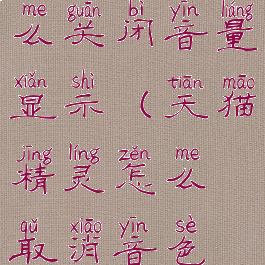 me guān bì yīn liáng
么关闭音量
xiǎn shì tiān māo
显示(天猫
jīng líng zěn me
精灵怎么
qǔ xiāo yīn sè
取消音色